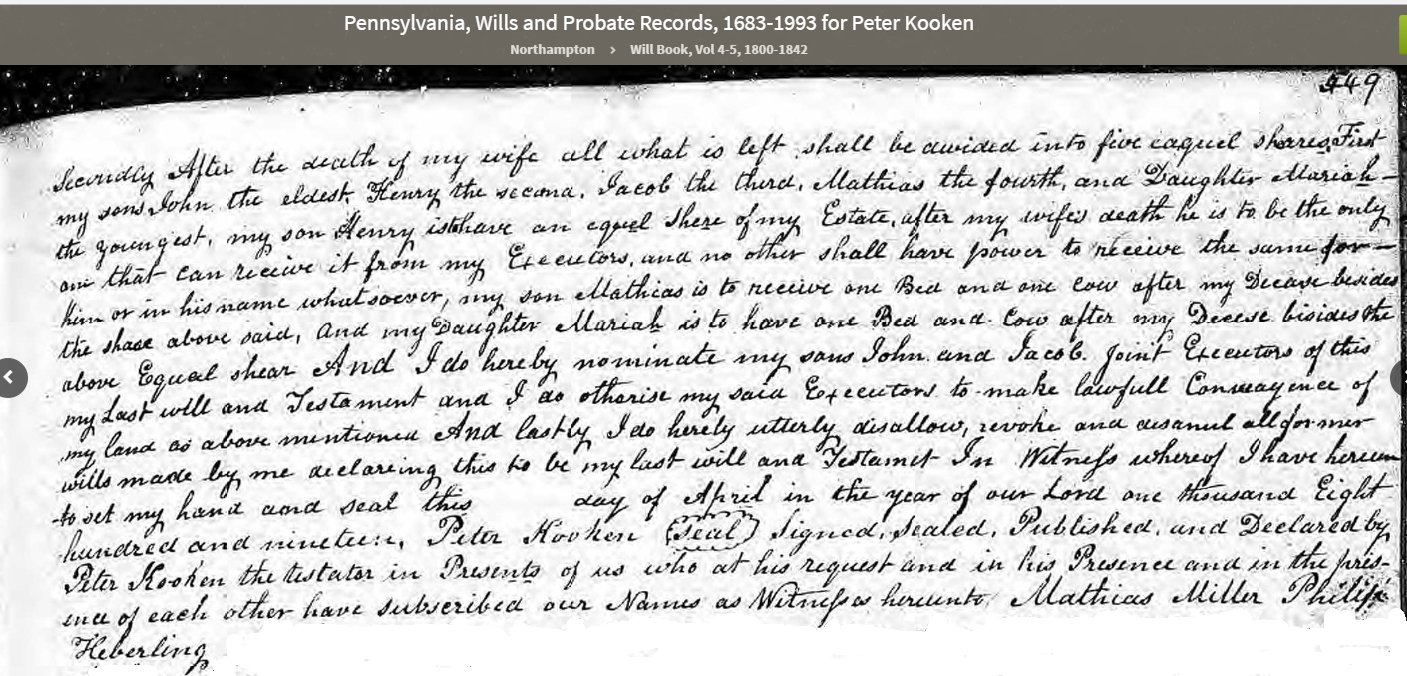 Pennsylvania, Wills and Probate Records, 1683-1993 for Peter Kooken
Northampton > Will Book, Vol 4-5, 1800-1842
449
Secondly After the death of my wife all what is left shall be devided into five eaquel sharres, First
my sons John the eldest, Henry the second, Jacob the third, Mathias the fourth, and Daughter Mariah –
the youngest, my son Henry is to have an equel shere of my Estate, after my wife's death he is to be the only
one that can receive it from my Executors, and no other shall have power to receive the same for –
him or in his name whatsoever, my son Mathias is to receive one Bed and one Cow after my Decase besides
the shaae above said, And my Daughter Mariah is to have one Bed and Cow after my Decese bisides the
above Equeal shear And I do hereby nominate my sons John and Jacob. Joint Executors of this
my Last will and Testament and I do otharise my said Executors to make lawfull Conveayence of
my land as above mentioned And lastly I do herely utterly disallow, revoke and disanul all former
wills made by me declareing this to be my last will and Testamet In Witness whereof I have hereun
to set my hand and seal this day of April in the year of our Lord one thousand Eight
hundred and nineteen, Peter Kooken (Seal) Signed, Sealed, Published, and Declared by
Peter Kooken the testator in Presents of us who at his request and in his Presence and in the pres-
ence of each other have subscribed our Names as Witnesses hereunto, Mathias Miller Philip
Heberling